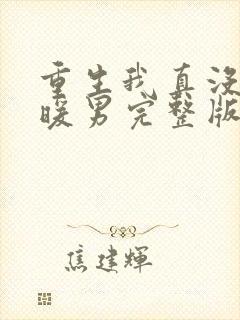 重生我真没
暖男完整版
焦建輝